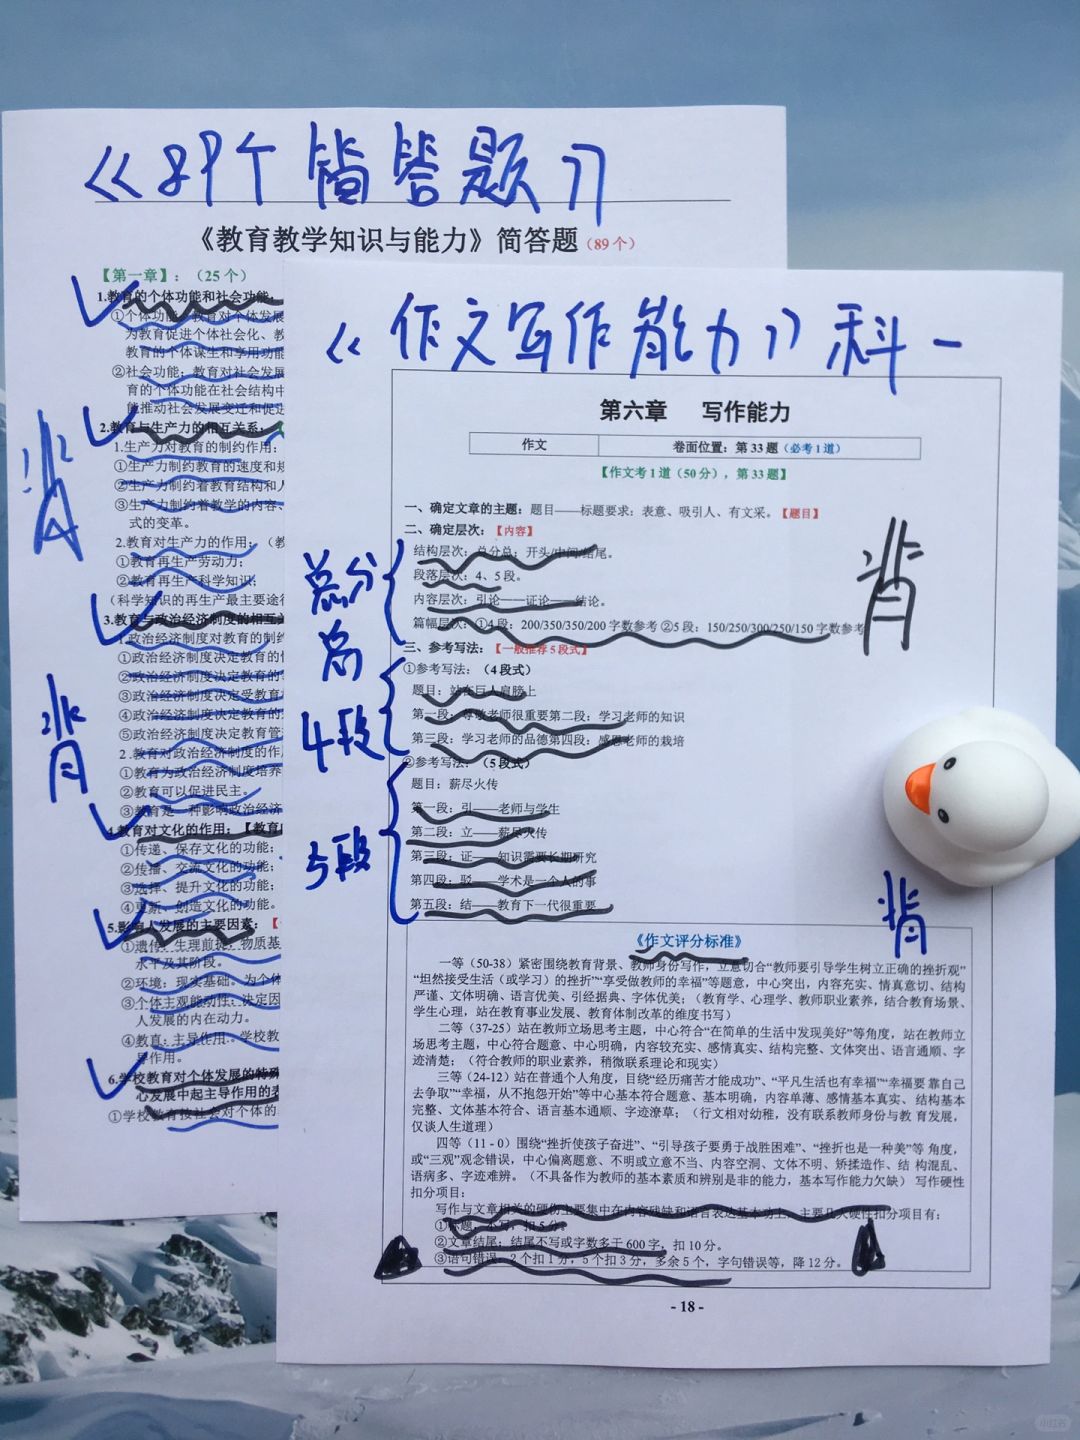 《89个简答题》
《教育教学知识与能力》简答题（89个）
【第一章】：（25个）
1.教育的个体功能和社会功能：
①个体功能：教育对个体发展
为教育促进个体社会化、教
教育的个体谋生和享用功能
②社会功能：教育对社会发展
育的个体功能在社会结构中
能推动社会发展变迁和促进
2.教育与生产力的相互关系：
1.生产力对教育的制约作用：
①生产力制约教育的速度和规
②生产力制约着教育结构和人
③生产力制约着教学的内容、
式的变革。
2.教育对生产力的作用：（教
①教育再生产劳动力；
②教育再生产科学知识；
（科学知识的再生产最主要途径
3.教育与政治经济制度的相互关
1.政治经济制度对教育的制约
①政治经济制度决定教育的
②政治经济制度决定教育的
③政治经济制度决定受教育
④政治经济制度决定教育的
⑤政治经济制度决定教育管
2.教育对政治经济制度的作
①教育为政治经济制度培养
②教育可以促进民主。
③教育是一种影响政治经济
4.教育对文化的作用：【教育
①传递、保存文化的功能；
②传播、交流文化的功能；
③选择、提升文化的功能；
④更新、创造文化的功能。
5.影响人发展的主要因素：
①遗传：生理前提；物质基
水平及其阶段。
②环境：现实基础。为个体
③个体主观能动性：决定因
人发展的内在动力。
④教育：主导作用。学校教
导作用。
6.学校教育对个体发展的特殊
心发展中起主导作用的表
①学校教育按社会对个体的
背
背
《作文写作能力》科一
第六章 写作能力
作文 卷面位置：第33题（必考1道）
【作文考1道（50分），第33题】
一、确定文章的主题：题目——标题要求：表意、吸引人、有文采。【题目】
二、确定层次：【内容】
结构层次：总分总：开头/中间/结尾。
段落层次：4、5段。
内容层次：引论——证论——结论。
篇幅层次：①4段：200/350/350/200字数参考②5段：150/250/300/250/150字数参考
三、参考写法：【一般推荐5段式】
①参考写法：（4段式）
题目：站在巨人肩膀上
第一段：尊敬老师很重要第二段：学习老师的知识
第三段：学习老师的品德第四段：感恩老师的栽培
②参考写法：（5段式）
题目：薪尽火传
第一段：引——老师与学生
第二段：立——薪尽火传
第三段：证——知识需要长期研究
第四段：驳——学术是一个人的事
第五段：结——教育下一代很重要
总分
总
4段
5段
背
背
《作文评分标准》
一等（50-38）紧密围绕教育背景、教师身份写作，立意切合“教师要引导学生树立正确的挫折观”
“坦然接受生活（或学习）的挫折”“享受做教师的幸福”等题意，中心突出，内容充实、情真意切、结构
严谨、文体明确、语言优美、引经据典、字体优美；（教育学、心理学、教师职业素养，结合教育场景、
学生心理，站在教育事业发展、教育体制改革的维度书写）
二等（37-25）站在教师立场思考主题，中心符合“在简单的生活中发现美好”等角度，站在教师立
场思考主题，中心符合题意、中心明确，内容较充实、感情真实、结构完整、文体突出、语言通顺、字
迹清楚；（符合教师的职业素养，稍微联系理论和现实）
三等（24-12）站在普通个人角度，目绕“经历痛苦才能成功”、“平凡生活也有幸福”“幸福要靠自己
去争取”“幸福，从不抱怨开始”等中心基本符合题意、基本明确，内容单薄、感情基本真实、结构基本
完整、文体基本符合、语言基本通顺、字迹潦草；（行文相对幼稚，没有联系教师身份与教育发展，
仅谈人生道理）
四等（11-0）围绕“挫折使孩子奋进”、“引导孩子要勇于战胜困难”、“挫折也是一种美”等角度，
或“三观”观念错误，中心偏离题意、不明或立意不当、内容空洞、文体不明、矫揉造作、结构混乱、
语病多、字迹难辨。（不具备作为教师的基本素质和辨别是非的能力，基本写作能力欠缺）写作硬性
扣分项目：
写作与文章相关的硬伤主要集中在内容残缺和语言表达基本功上，主要几大硬性扣分项目有：
①标题：不写，扣5分。
②文章结尾：结尾不写或字数多于600字，扣10分。
③语句错误：2个扣1分，5个扣3分，多余5个，字句错误等，降12分。
- 18 -
小红书